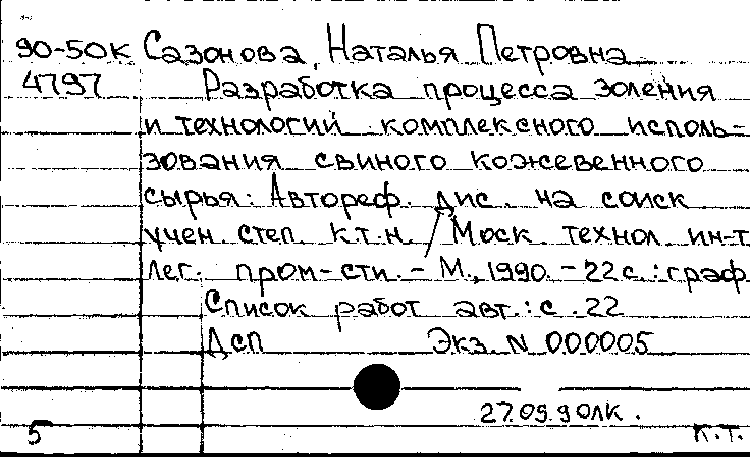 90-50к Сазонова, Наталья Петровна
4797 Разработка процесса золения
и технологий комплексного исполь-
зования свиного кожевенного
сырья: Автореф. дис. на соиск
учен. степ. к.т.н. / Моск. технол. ин-т
лег. пром-сти. - М., 1990. - 22 с.: граф
Список работ авт.: с. 22
Дсп Экз. N 000005
27.09.90лк.
5 К.Т.